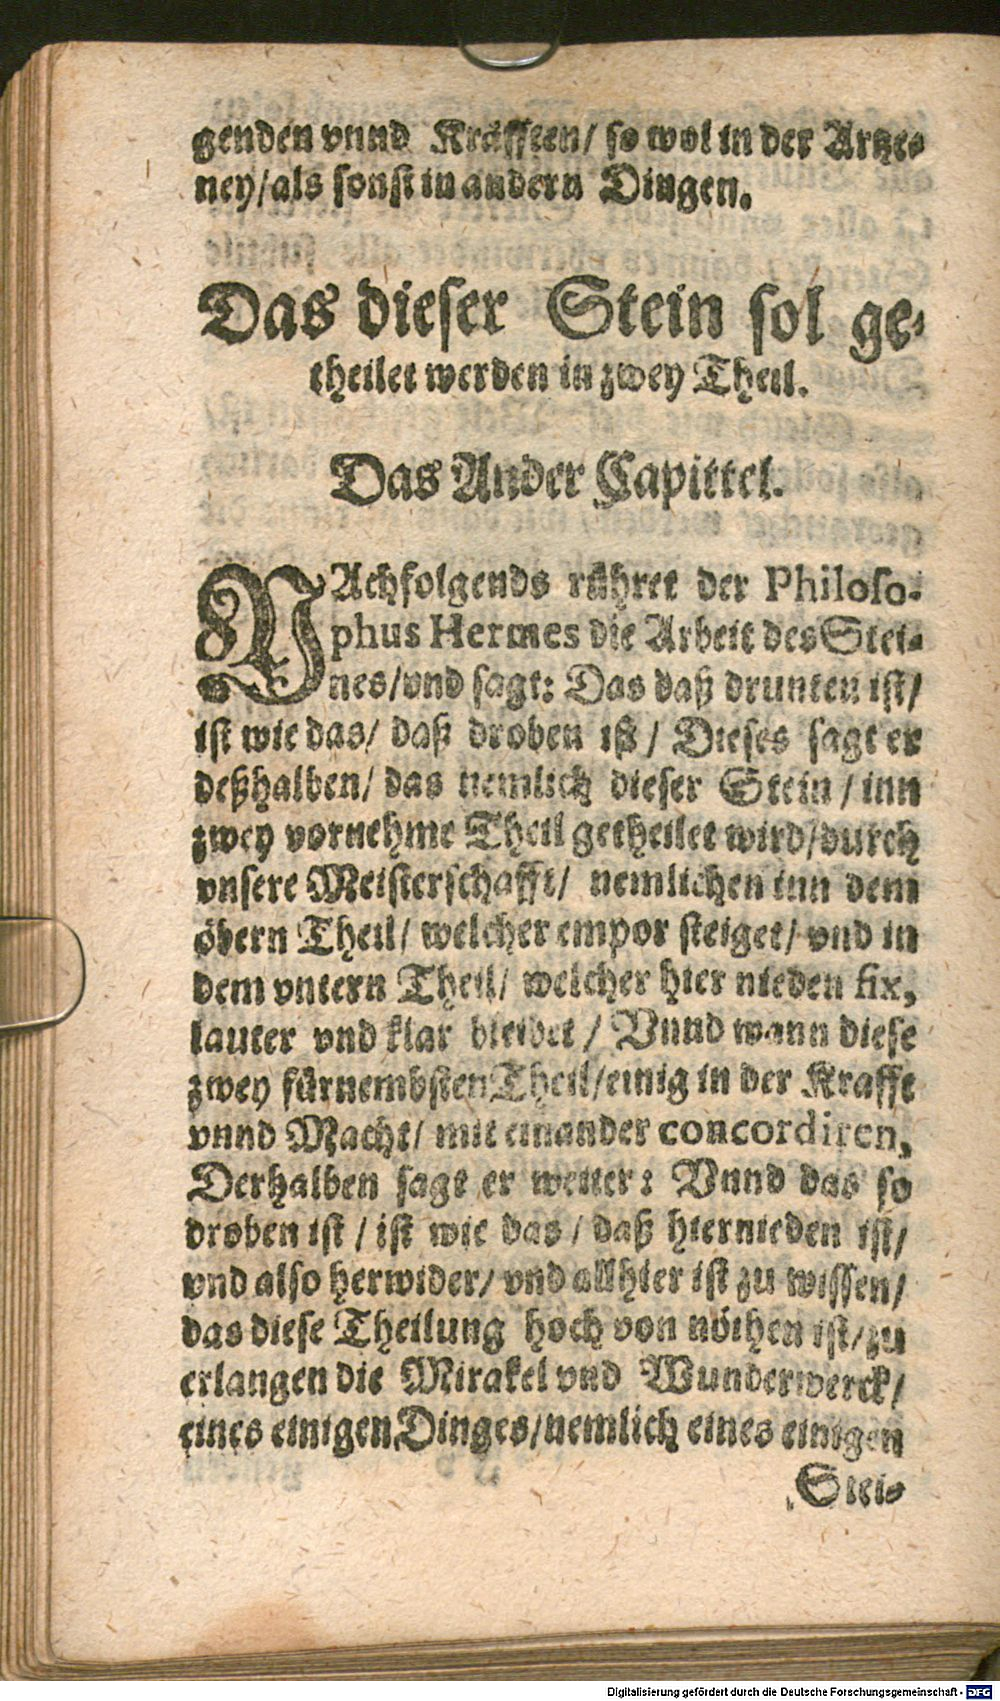 genden vnnd Kräfften/ so wol in der Artze-
ney/als sonst in andern Dingen.
Das dieser Stein sol ge-
theilet werden in zwey Theil.
Das Ander Capittel.
NAchfolgends rühret der Philoso-
phus Hermes die Arbeit des Stei-
nes/vnd sagt: Das daß drunten ist/
ist wie das/ daß droben ist / Dieses sagt er
deßhalben/ das nemlich dieser Stein / inn
zwey vornehme Theil getheilet wird/durch
vnsere Meisterschafft/ nemlichen inn dem
öbern Theil/ welcher empor steiget/ vnd in
dem vntern Theil/ welcher hier nieden fix,
lauter vnd klar bleibet / Vnnd wann diese
zwey fürnembsten Theil/einig in der Krafft
vnnd Macht/ mit einander concordiren,
Derhalben sagt er weiter: Vnnd das so
droben ist / ist wie das / daß hiernieden ist/
vnd also herwider/ vnd allhier ist zu wissen/
das diese Theilung hoch von nöthen ist/zu
erlangen die Mirakel vnd Wunderwerck/
eines einigen Dinges/nemlich eines einigen
Stei-
Digitalisierung gefördert durch die Deutsche Forschungsgemeinschaft - DFG